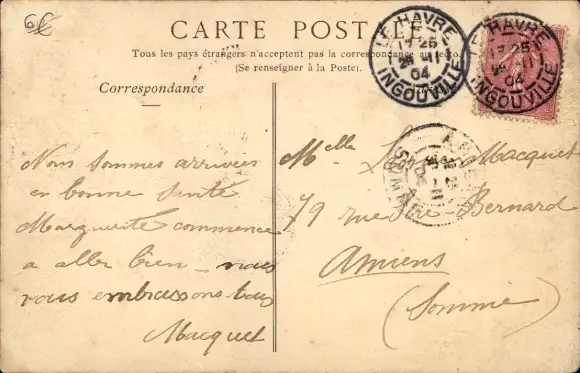 6€
CARTE POSTALE
Tous les pays étrangers n'acceptent pas la correspondance au recto.
(Se renseigner à la Poste).
LE HAVRE
17 25
26 -11
04
INGOUVILLE
LE HAVRE
17 25
26 -11
04
INGOUVILLE
Correspondance
Nous sommes arrivées
en bonne santé
Marguerite commence
a aller bien - nous
vous embrassons tous
Macquet
Melle Macquet
79 rue Bernard
Amiens
(Somme)
SOMME